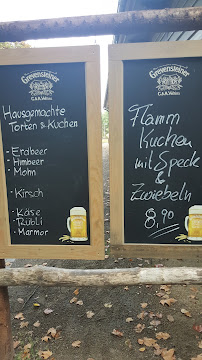 Grevensteiner
C.& A. Veltins
Hausgemachte
Torten & Kuchen
- Erdbeer
- Himbeer
- Mohn
- Kirsch
- Käse
- Rübli
- Marmor
Grevensteiner
C.& A. Veltins
Flamm
Kuchen
mit Speck
&
Zwiebeln
8,90